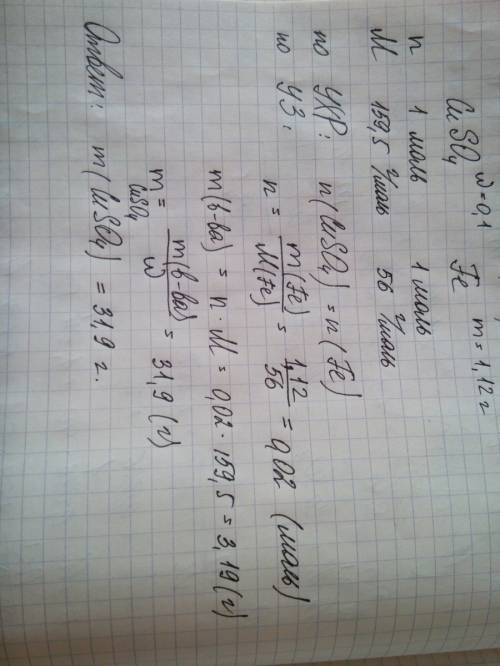 CuSO₄ w=0,1 Fe m=1,12 г
n 1 моль 1 моль
M 159,5 г/моль 56 г/моль
по УХР: n(CuSO₄) = n(Fe)
по УЗ: n = m(Fe)/M(Fe) = 1,12/56 = 0,02 (моль)
m(в-ва) = n · M = 0,02 · 159,5 = 3,19 (г)
m CuSO₄ = m(в-ва)/w = 31,9 (г)
Ответ: m(CuSO₄) = 31,9 г.